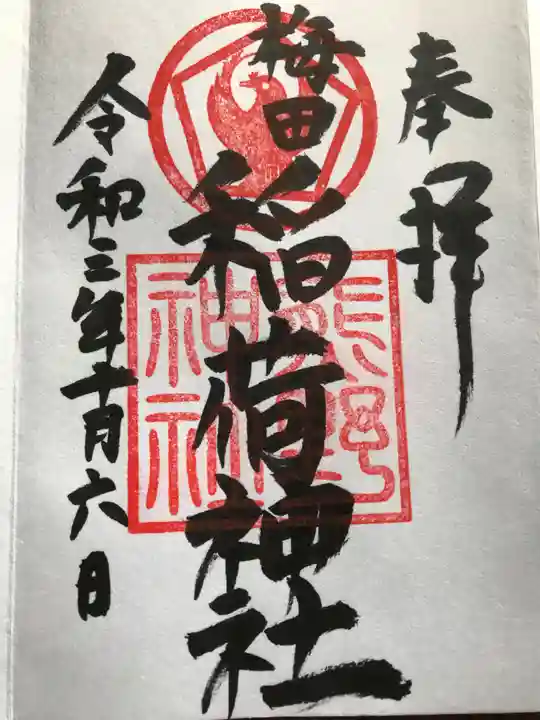 奉拝
梅田
稲荷神社
熊野
神社
令和三年十月六日